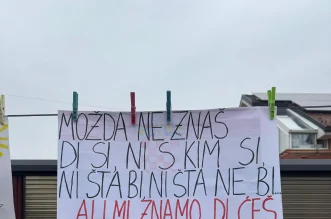 MOŽDA NE ZNAŠ
DI SI NI S KIM SI,
NI ŠTA BI NI ŠTA NE BI...
ALI MI ZNAMO DI ĆEŠ